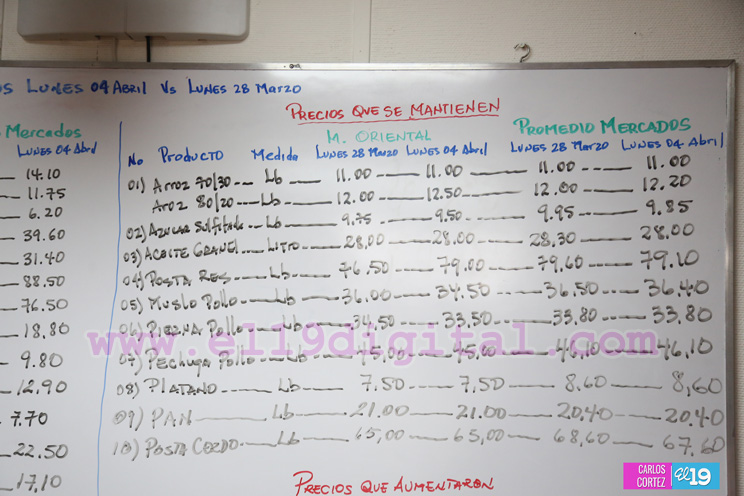 OS LUNES 04 ABRIL VS LUNES 28 MARZO
PRECIOS QUE SE MANTIENEN
Mercados
LUNES 04 Abril
14.10
11.75
6.20
39.60
31.40
88.50
76.50
18.80
9.80
12.90
7.70
22.50
17.10
M. ORIENTAL PROMEDIO MERCADOS
No PRODUCTO Medida LUNES 28 MARZO LUNES 04 Abril LUNES 28 MARZO LUNES 04 Abril
01) Arroz 70/30 --- Lb 11.00 11.00 11.00 11.00
Aroz 80/20 --- Lb 12.00 12.50 12.00 12.20
02) Azucar Sulfitada Lb 9.75 9.50 9.95 9.85
03) ACEITE GRANEL LITRO 28.00 28.00 28.30 28.00
04) POSTA RES Lb 76.50 79.00 79.60 79.10
05) MUSLO POLLO Lb 36.00 34.50 36.50 36.40
06) PIERNA Pollo Lb 34.50 33.50 33.80 33.80
07) PECHUGA Pollo Lb 45,00 45,00 46,10 46,10
08) PLATANO Lb 7.50 7,50 8.60 8,60
09) PAN Lb 21.00 21.00 20,40 20.40
10) POSTA CERDO Lb 65,00 65,00 68,60 67.60
PRECIOS QUE AUMENTARON
www.el19digital.com
CARLOS CORTEZ
El 19